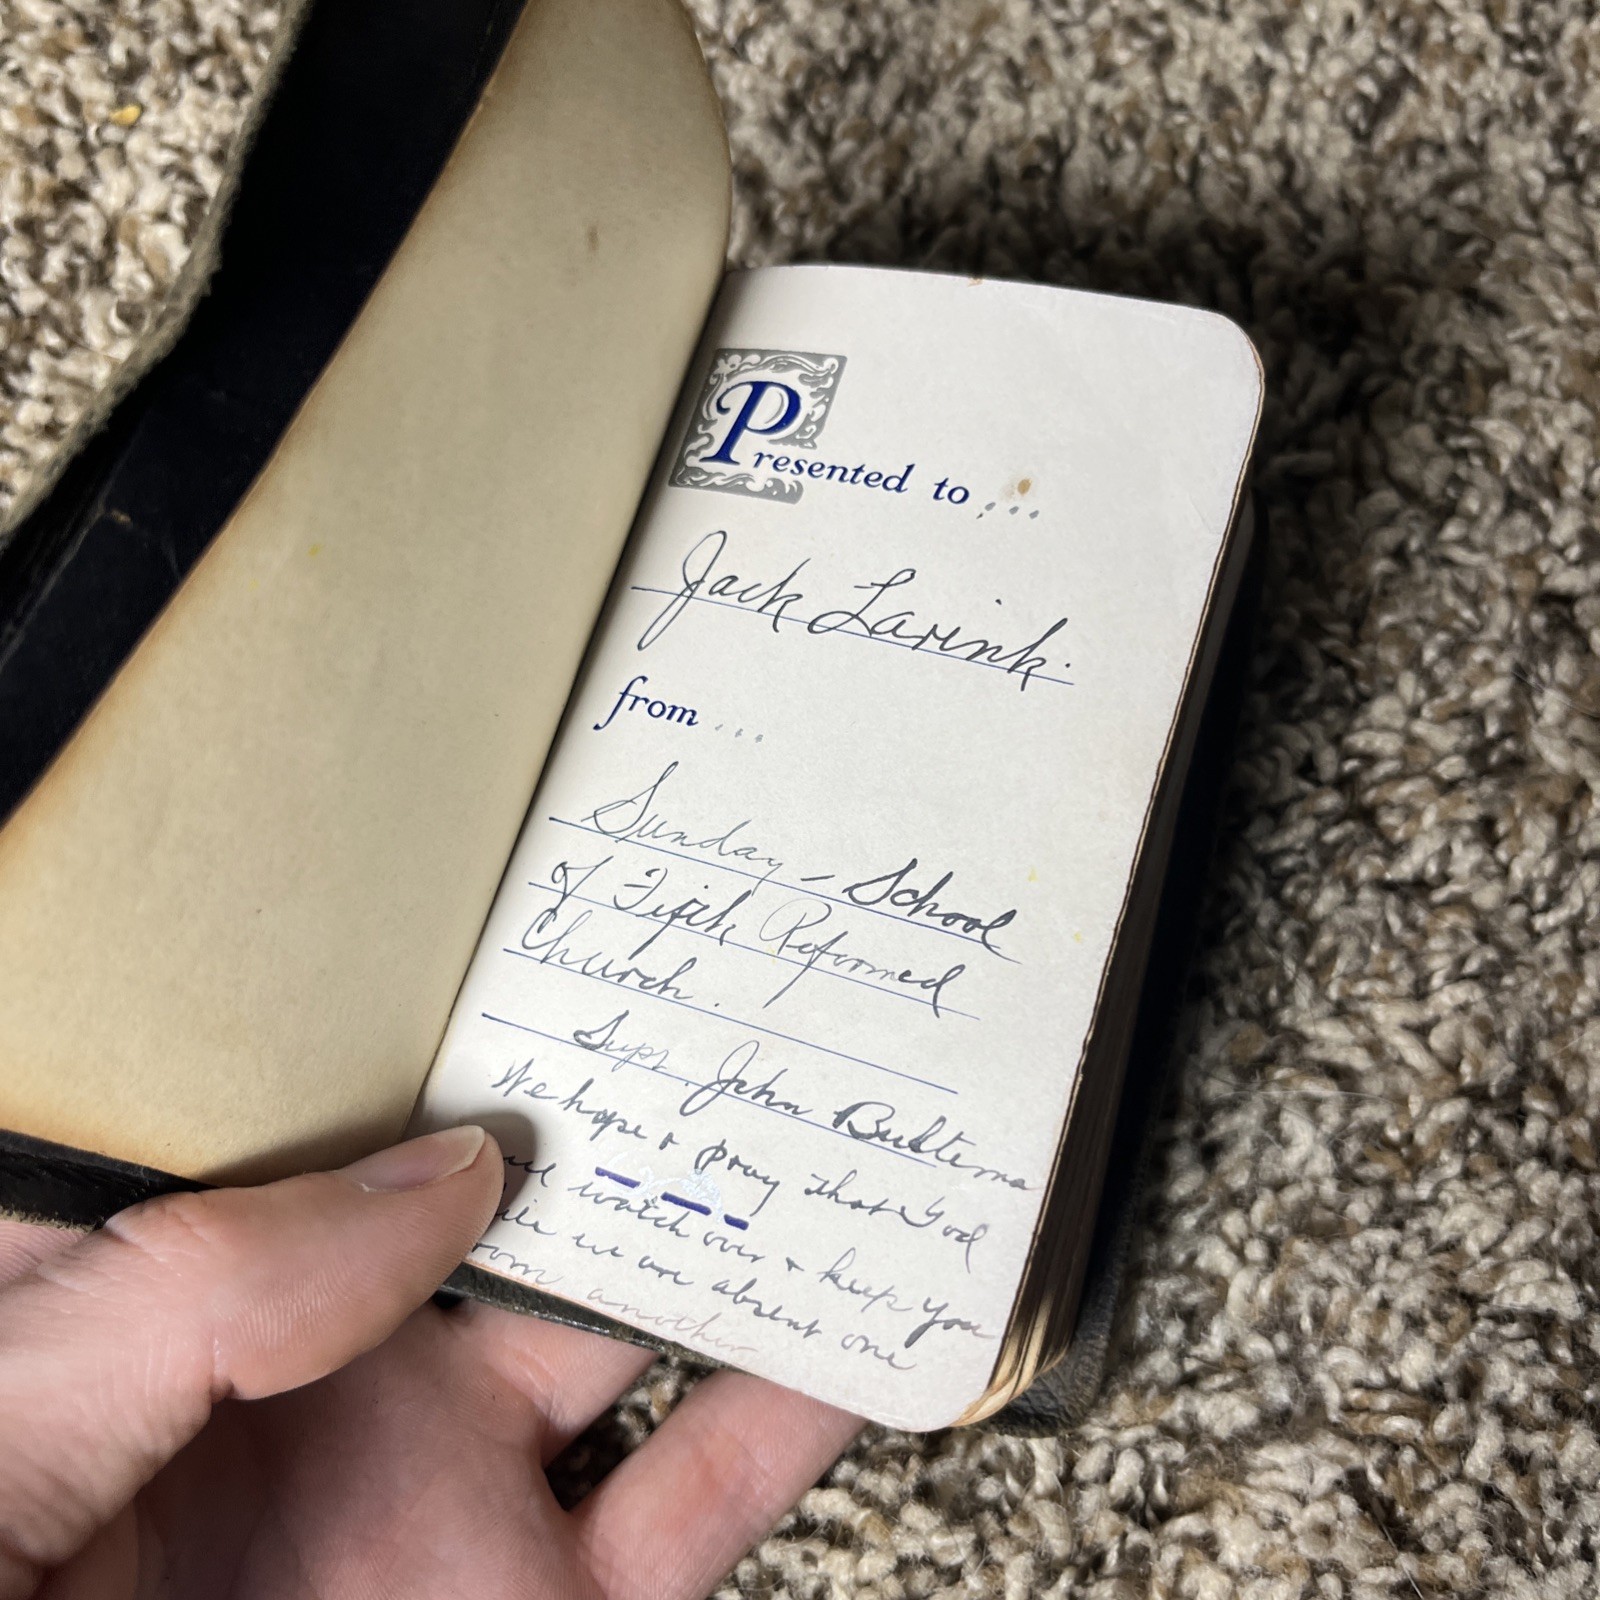 Presented to ...
Jack Larink.
from ...
Sunday - School
of Fifth Reformed
Church.
Supt. John Bultema
We hope + pray that God
watch over + keep you
we are absent one
another